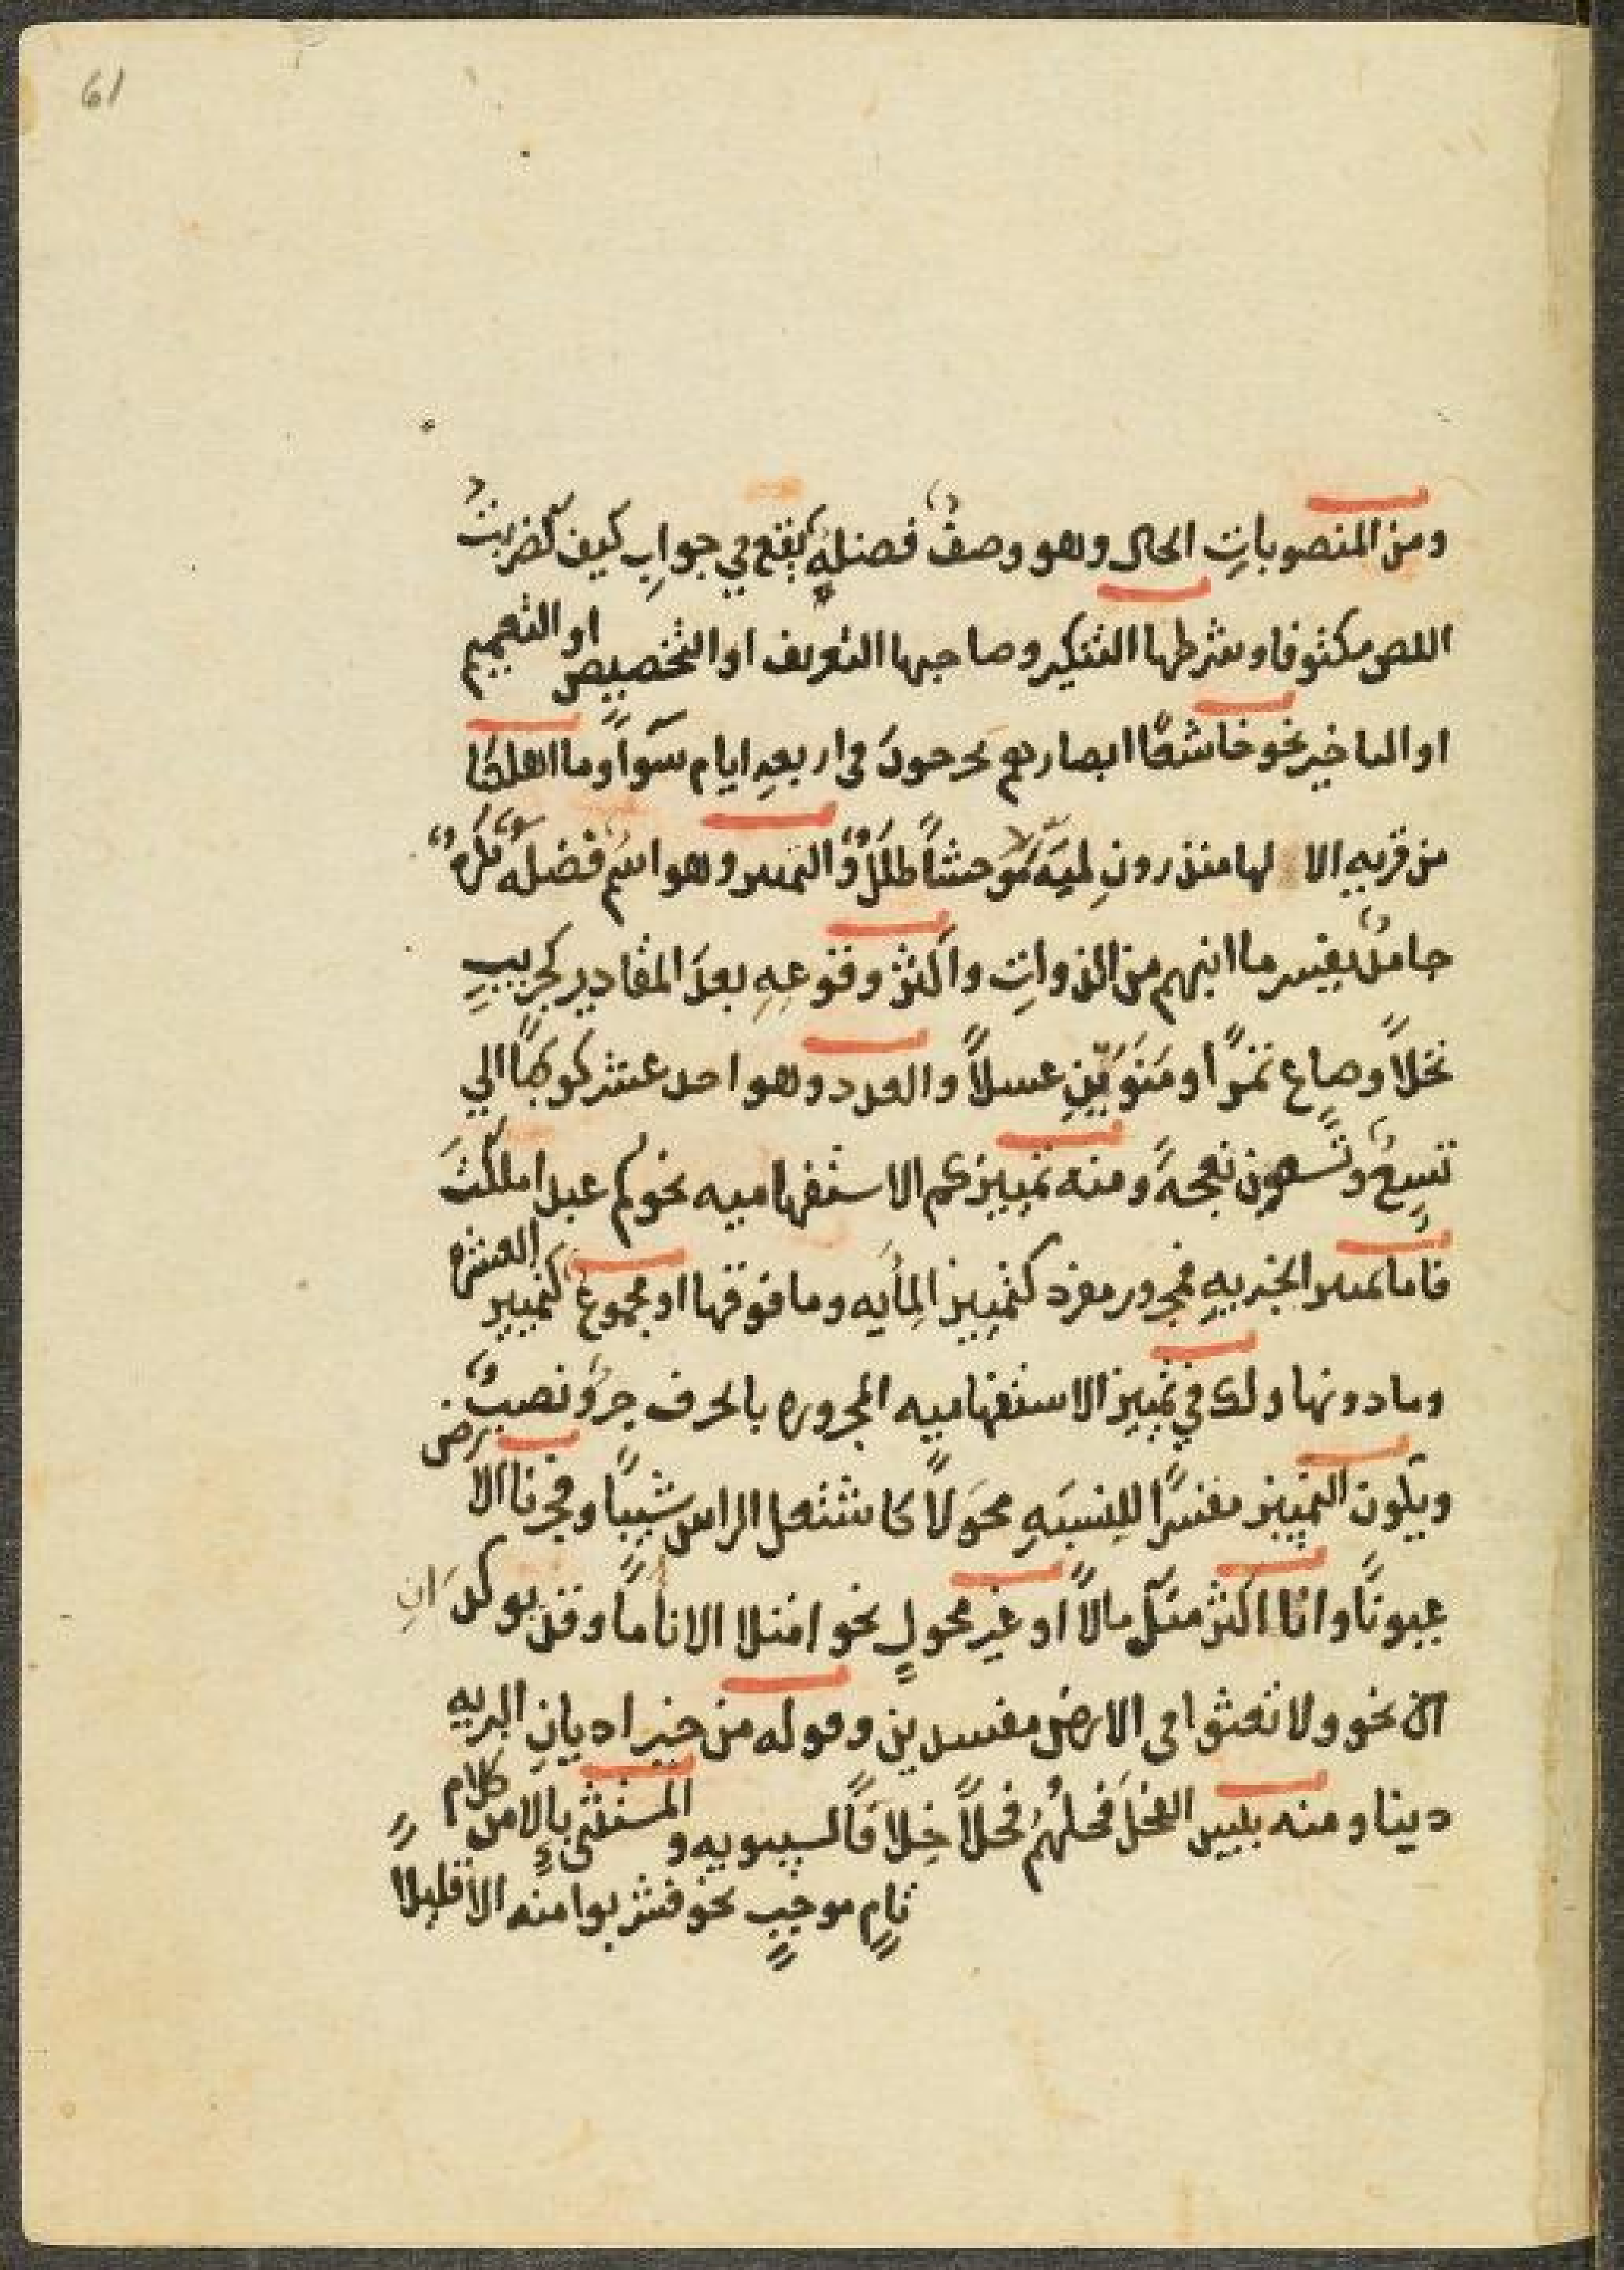 61
ومن المنصوباتِ الحال وهو وصفٌ فضلةٌ يقع في جوابِ كيف كضربتُ
اللص مكتوفا وشرطها التنكير وصاحبها التعريف او التخصيص او التعميم
او التاخير نحو خاشعًا ابصارهم يخرجونَ في اربعهِ ايام سَواً وما اهلكنا
من قريهِ الا لها منذرونِ لميَهَ مُوحشاً طللٌ والتمييز وهو اسمٌ فضلهٌ نكرهٌ
جامدٌ يفسر ما انبهم من الذواتِ واكثر وقوعِهِ بعدَ المقادير كجريبٍ
نخلاً وصاعٍ تمرًا ومَنَوَيْنِ عسلاً والعدد وهو احد عشر كوكبًا الي
تسعٌ وتسعون نعجهً ومنه تمييز كم الاستفهاميه نحو كم عبدا ملكتَ
فاما تمييز الخبريهِ فمجرور مفرد كتمييز المِأيه وما فوقها او مجموعٌ كتمييز العشره
وما دونها ولك في تمييز الاستفهاميه المجروره بالحرف جرٌ ونصبٌ
ويكون التمييز مفسرًا للنسبَهِ محَولاً كاشتعل الراس شيبًا وفجرنا الارض
عيونًا وانا اكثر منكَ مالاً او غير محولٍ نحو امتلا الانا مأً وقد يوكدَانِ
نحو ولا تعثوا في الارض مفسدين وقوله من خير اديانِ البريه
دينا ومنه بئس الفحلَ فحلُهُمُ فحلاً خِلافًا لسيبويه والمستثنى بالا من كلام
تامٍ موجبٍ نحو فشربوا منه الا قليلاً